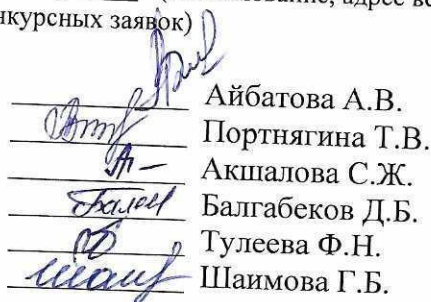 нкурсных заявок)
Айбатова А.В.
Портнягина Т.В.
Акшалова С.Ж.
Балгабеков Д.Б.
Тулеева Ф.Н.
Шаимова Г.Б.